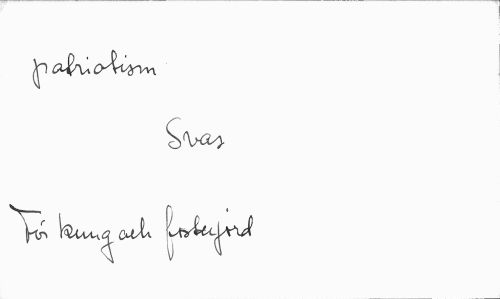 patriotism
Svas
För kung och fosterjord